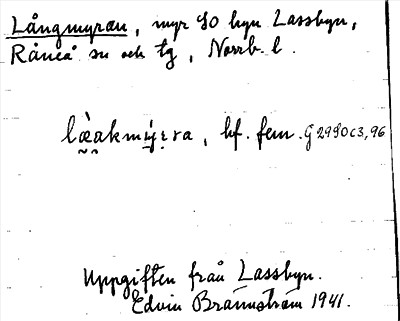 Långmyran, myr SO byn Lassbyn,
Råneå sn och tg, Norrb. l.
bf. fem. G2990c3,96
Uppgiften från Lassbyn.
Edvin Brännström 1941.